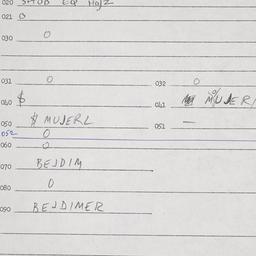 020 SHUB EQ HojZ
021 0
030 0
031 0 032 0
040 $ 041 MUJERI
050 $ MUJERL 051 —
052 0
060 0
070 BEJDIM
080 0
090 BEJDIMER